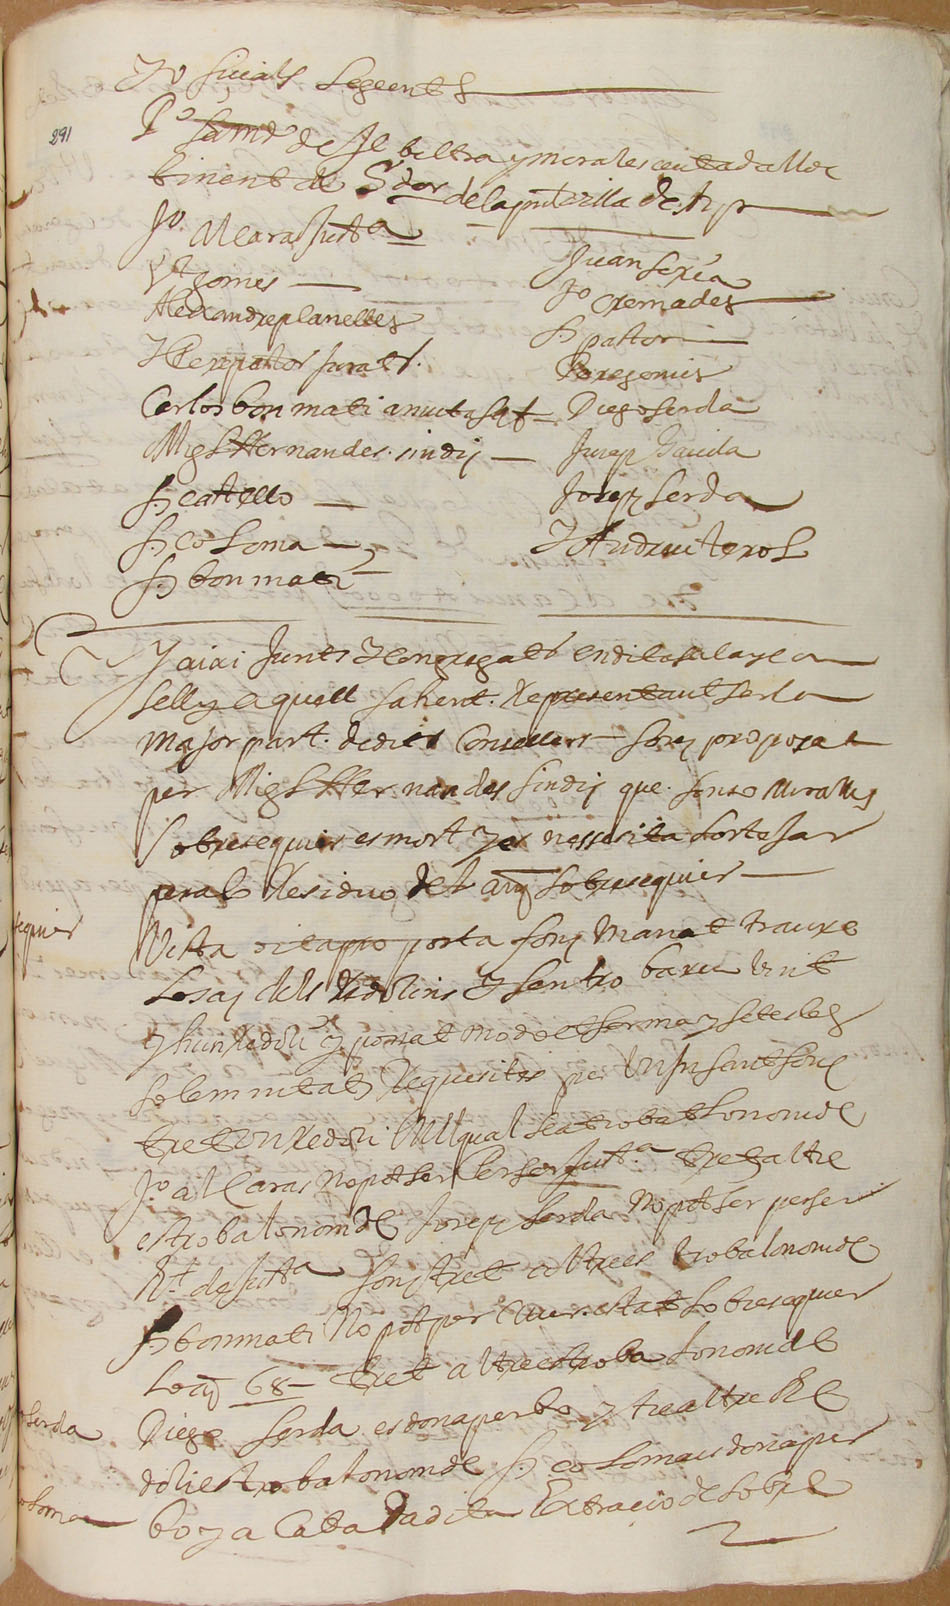 Yo ficials seguents
291
Pº de Js beltra y morales ciutada lloc
tinent de Sdor de la pnt villa de
Jº Alcaras Justª
Vt gomes
Alexandre planelles
Y Pere pastor Jurats
Carlos bonmati amutasaf
Migl Hernandes sindich
fr castello
fr coloma
fr bonmati
Juan
Jº cremades
fr pastor
Pere gomis
Diego Serda
Jusep Garcia
Josep Serda
Y Andreu terol
Y aixi Junts Y Congregats en dita sala y con
sell y aquell fahent Representant y fent la
Major part de dits Consellers fonch proposat
per Migl Hernandes Sindich que fonso Miralles
Sobresequier es mort Y es nessesita sortejar
peral Residuo del any sobresequier
Vista dita proposta fonch Manat traure
lo sach dels Redolins Y dentro haver vint
y hun Redoli y posat modo et forma y fetes les
solemnitats Requesites per Un Infant fonch
tret Un Redoli En lo qual sea trobat lo nom de
Jº alcaras No pot ser Per ser Justª tret altre
es troba lo nom de Josep Serda No pot ser per ser
Rt de Justª fonch tret altre es troba lo nom de
fr bonmati No pot per haver estat sobresequier
lo any 68 tret altre es troba lo nom de
Diego Serda es dona per bo y tret altre Re
doli es troba lo nom de fr coloma es dona per
bo y acabada dita Extracio de sobre
sequier
Serda
coloma